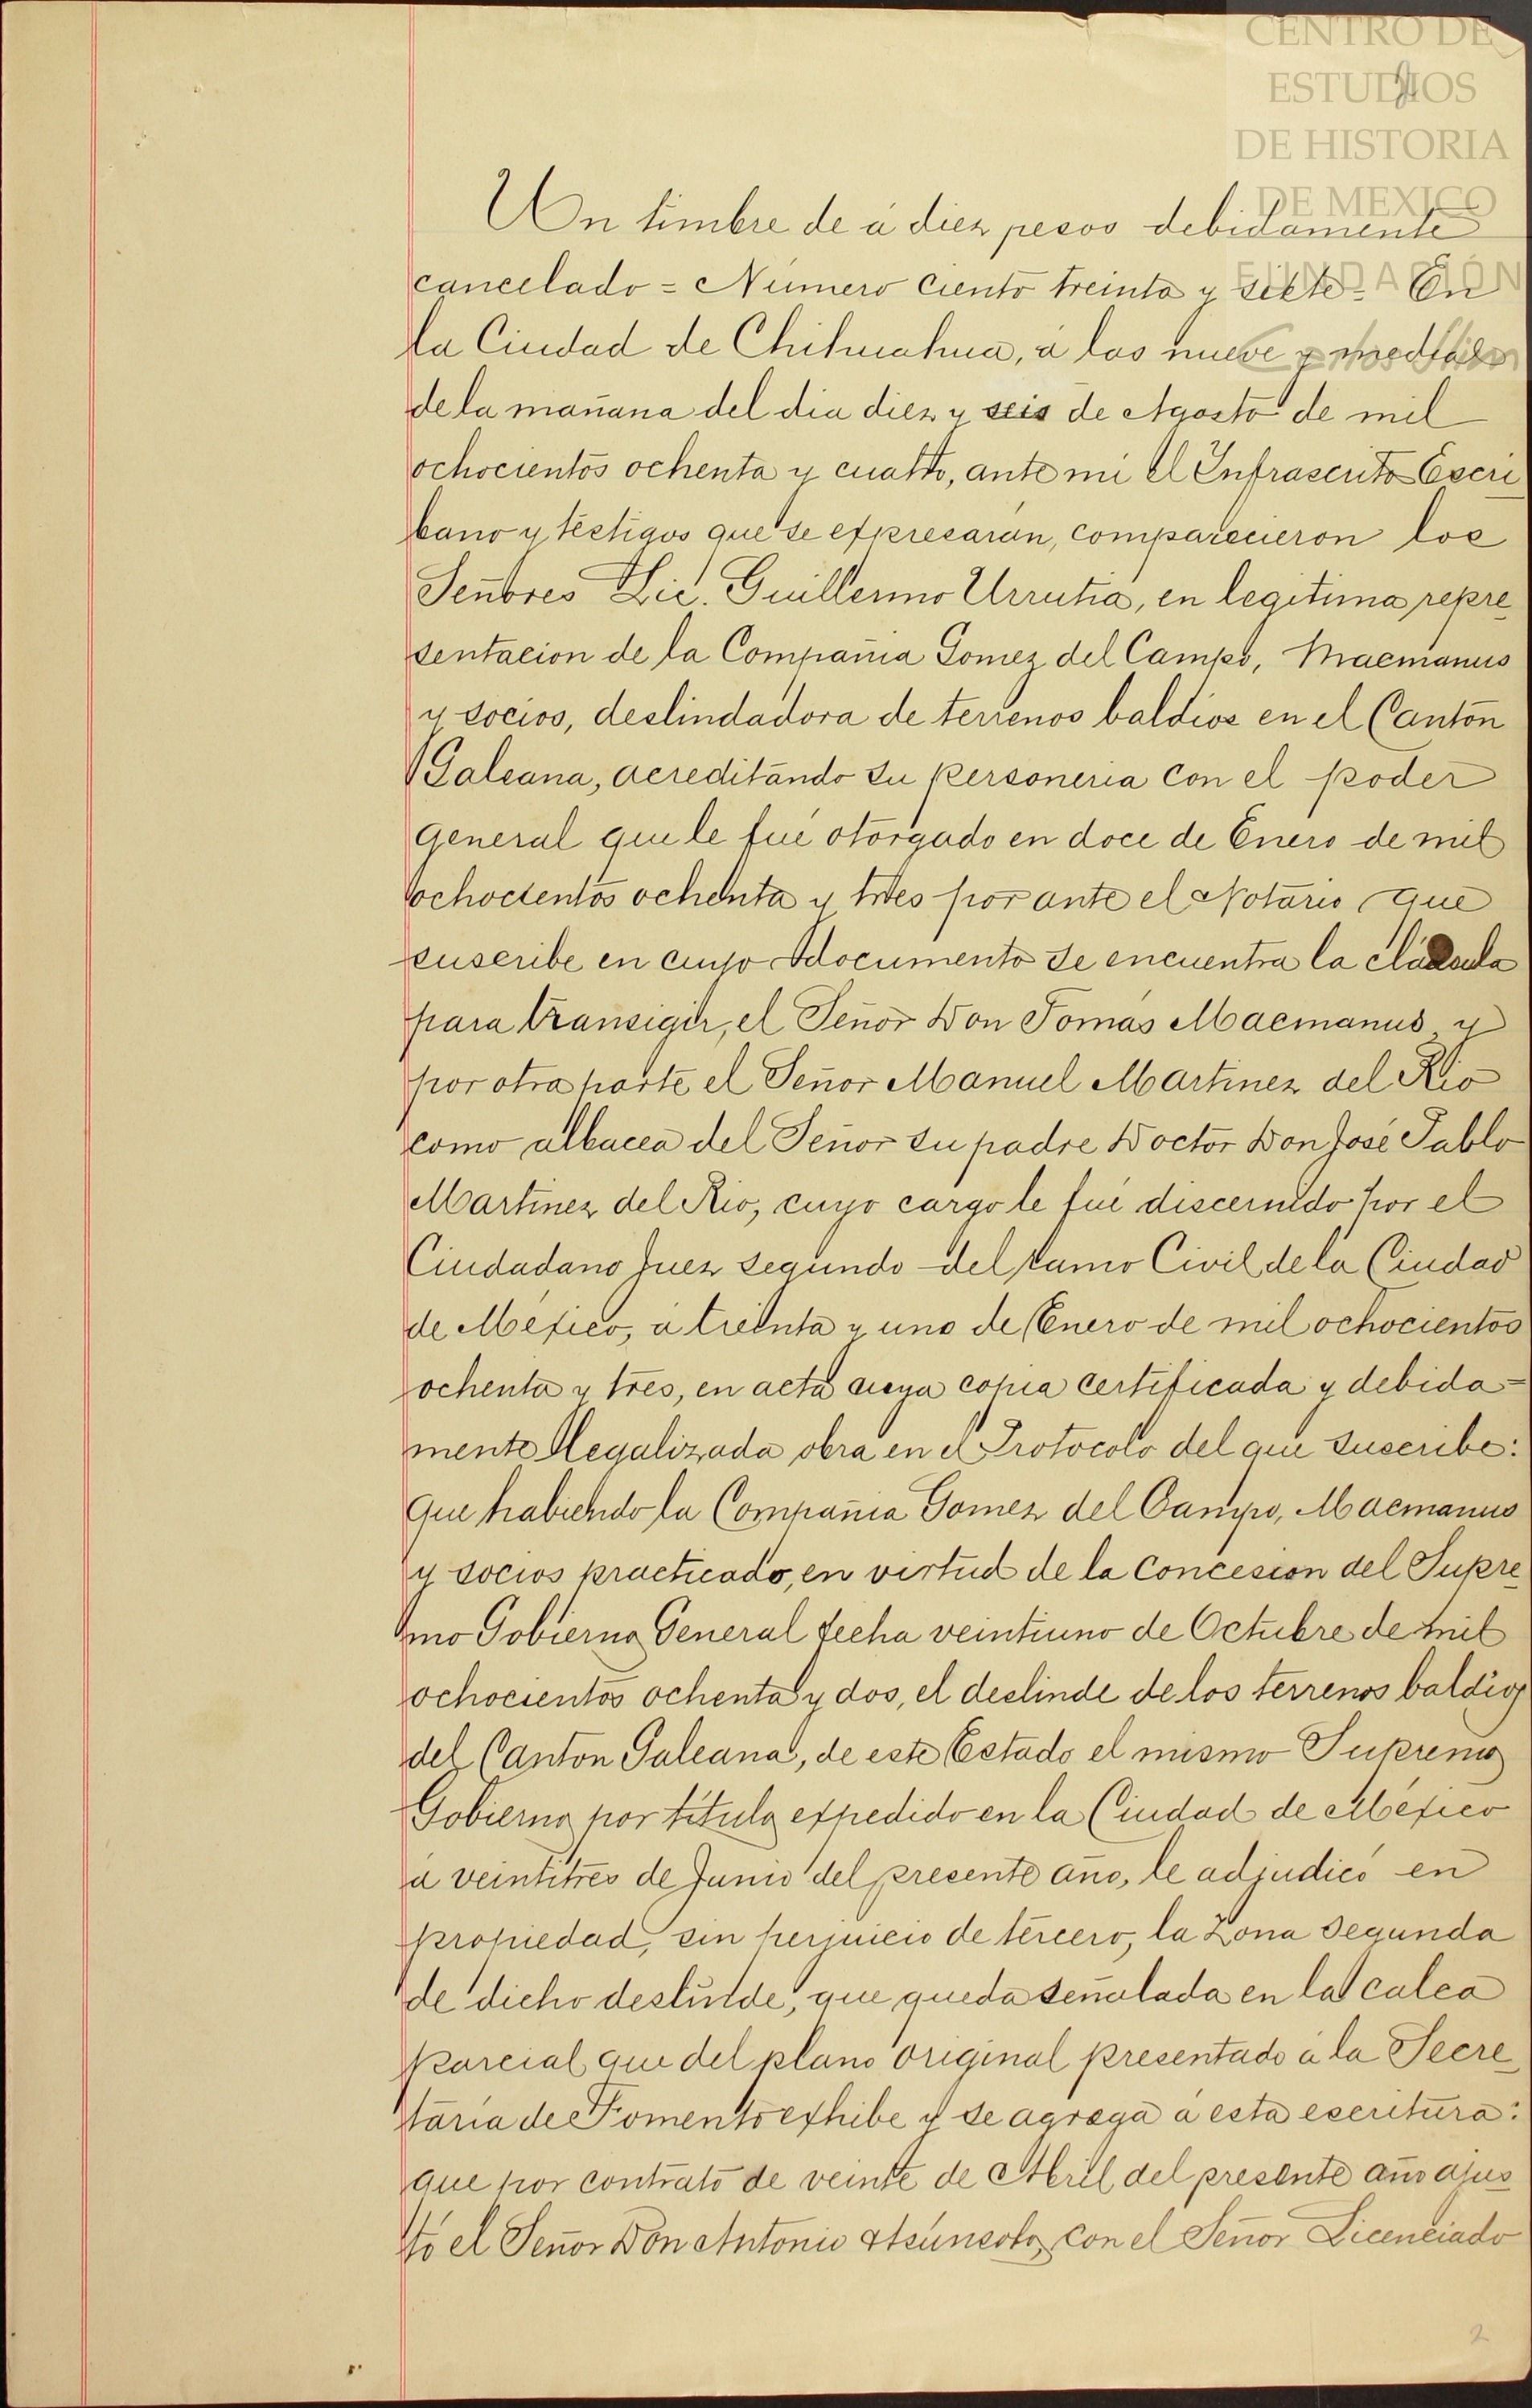 CENTRO DE
ESTUDIOS
DE HISTORIA
DE MEXICO
FUNDACIÓN
Carlos Slim
Un timbre de á diez pesos debidamente
cancelado = Número ciento treinta y siete = En
la Ciudad de Chihuahua, á las nueve y media
de la mañana del dia diez y seis de Agosto de mil
ochocientos ochenta y cuatro, ante mi el Infrascrito Escri
bano y testigos que se expresarán, comparecieron los
Señores Lic. Guillermo Urrutia, en legitima repre
sentacion de la Compañia Gomez del Campo, Macmanus
y socios, deslindadora de terrenos baldios en el Canton
Galeana, acreditando su personeria con el poder
general que le fué otorgado en doce de Enero de mil
ochocientos ochenta y tres por ante el Notario que
suscribe en cuyo documento se encuentra la cláusula
para transigir, el Señor Don Tomás Macmanus, y
por otra parte el Señor Manuel Martinez del Rio
como albacea del Señor su padre Doctor Don José Pablo
Martinez del Rio, cuyo cargo le fué discernido por el
Ciudadano Juez segundo del ramo Civil de la Ciudad
de México, á treinta y uno de Enero de mil ochocientos
ochenta y tres, en acta cuya copia certificada y debida=
mente legalizada obra en el Protocolo del que suscribe:
que habiendo la Compañia Gomez del Campo, Macmanus
y socios practicado, en virtud de la concesion del Supre
mo Gobierno General fecha veintiuno de Octubre de mil
ochocientos ochenta y dos, el deslinde de los terrenos baldios
del Canton Galeana, de este Estado el mismo Supremo
Gobierno por título expedido en la Ciudad de México
á veintitres de Junio del presente año, le adjudicó en
propiedad, sin perjuicio de tercero, la zona segunda
de dicho deslinde, que queda señalada en la calca
parcial que del plano original presentado á la Secre
taria de Fomento exhibe y se agrega á esta escritura:
que por contrato de veinte de Abril del presente año ajus
tó el Señor Don Antonio Asúnsolo, con el Señor Licenciado
2